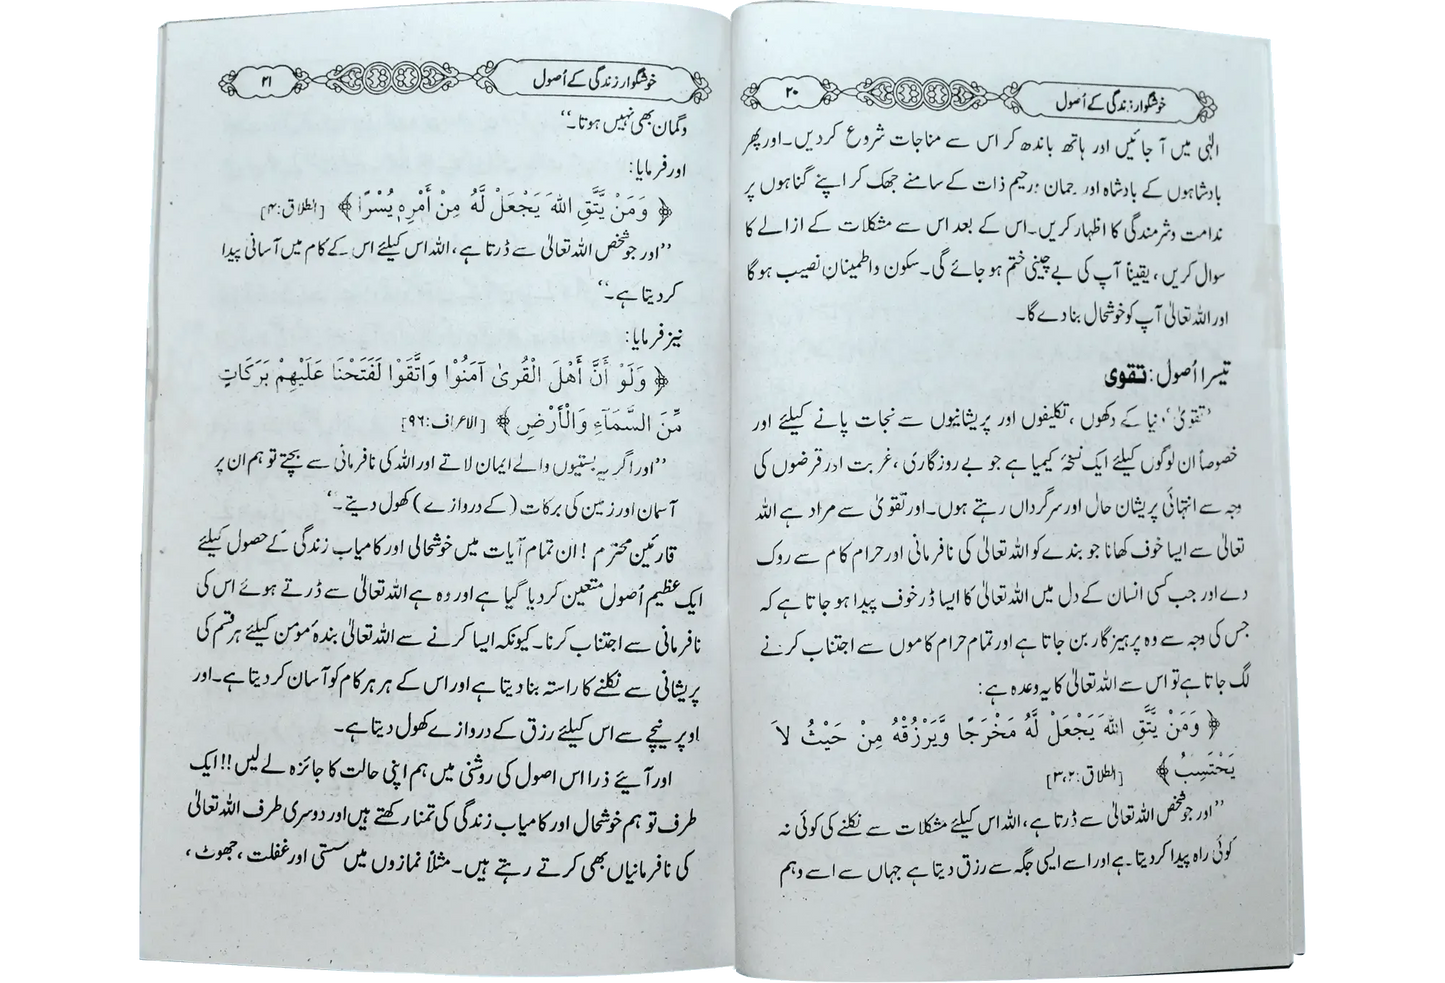 خوشگوار زندگی کے اُصول ۲۰
الٰہی میں آ جائیں ادر ہاتھ باندھ کر اس سے مناجات شروع کردیں۔اور پھر
بادشاہوں کے بادشاہ اور رحمان ورحیم ذات کے سامنے جھک کر اپنے گناہوں پر
ندامت وشرمندگی کا اظہار کریں۔اس کے بعد اس سے مشکلات کے ازالے کا
سوال کریں، یقیناً آپ کی بے چینی ختم ہو جائے گی۔سکون واطمینان نصیب ہو گا
اور اللہ تعالیٰ آپ کو خوشحال بنا دے گا۔
تیسرا اُصول: تقوی
'تقویٰ' دنیا کے دکھوں، تکلیفوں اور پریشانیوں سے نجات پانے کیلئے اور
خصوصاً ان لوگوں کیلئے ایک نسخۂ کیمیا ہے جو بے روزگاری، غربت ادر قرضوں کی
وجہ سے انتہائی پریشان حال اور سرگرداں رہتے ہوں۔اور تقویٰ سے مراد ہے اللہ
تعالیٰ سے ایسا خوف کھانا جو بندے کو اللہ تعالیٰ کی نافرمانی اور حرام کام سے روک
دے اور جب کسی انسان کے دل میں اللہ تعالیٰ کا ایسا ڈر خوف پیدا ہو جاتا ہے کہ
جس کی وجہ سے وہ پرہیزگار بن جاتا ہے اور تمام حرام کاموں سے اجتناب کرنے
لگ جاتا ہے تو اس سے اللہ تعالیٰ کا یہ وعدہ ہے:
﴿ وَمَنْ يَّتَّقِ اللّٰهَ يَجْعَلْ لَّهُ مَخْرَجًا وَّيَرْزُقْهُ مِنْ حَيْثُ لاَ
يَحْتَسِبُ ﴾ [الطلاق:۳،۲]
’’اور جو شخص اللہ تعالیٰ سے ڈرتا ہے، اللہ اس کیلئے مشکلات سے نکلنے کی کوئی نہ
کوئی راہ پیدا کر دیتا ہے اور اسے ایسی جگہ سے رزق دیتا ہے جہاں سے اسے وہم
خوشگوار زندگی کے اُصول ۲۱
وگمان بھی نہیں ہوتا۔‘‘
اور فرمایا:
﴿ وَمَنْ يَّتَّقِ اللّٰهَ يَجْعَلْ لَّهُ مِنْ أَمْرِهِ يُسْرًا ﴾ [الطلاق:۴]
’’اور جو شخص اللہ تعالیٰ سے ڈرتا ہے، اللہ اس کیلئے اس کے کام میں آسانی پیدا
کر دیتا ہے۔‘‘
نیز فرمایا:
﴿ وَلَوْ أَنَّ أَهْلَ الْقُرىٰ آمَنُوْا وَاتَّقَوْا لَفَتَحْنَا عَلَيْهِمْ بَرَكَاتٍ
مِّنَ السَّمَآءِ وَالْأَرْضِ ﴾ [الاعراف:۹۶]
’’اور اگر یہ بستیوں والے ایمان لاتے اور اللہ کی نافرمانی سے بچتے تو ہم ان پر
آسمان اور زمین کی برکات (کے دروازے) کھول دیتے۔‘
قارئین محترم ! ان تمام آیات میں خوشحالی اور کامیاب زندگی کے حصول کیلئے
ایک عظیم اُصول متعین کر دیا گیا ہے اور وہ ہے اللہ تعالیٰ سے ڈرتے ہوئے اس کی
نافرمانی سے اجتناب کرنا۔ کیونکہ ایسا کرنے سے اللہ تعالیٰ بندۂ مومن کیلئے ہر قسم کی
پریشانی سے نکلنے کا راستہ بنا دیتا ہے اور اس کے ہر ہر کام کو آسان کر دیتا ہے۔اور
اوپر نیچے سے اس کیلئے رزق کے دروازے کھول دیتا ہے۔
اور آیئے ذرا اس اصول کی روشنی میں ہم اپنی حالت کا جائزہ لے لیں!! ایک
طرف تو ہم خوشحال اور کامیاب زندگی کی تمنا رکھتے ہیں اور دوسری طرف اللہ تعالیٰ
کی نافرمانیاں بھی کرتے رہتے ہیں۔ مثلاً نمازوں میں سستی اور غفلت، جھوٹ،